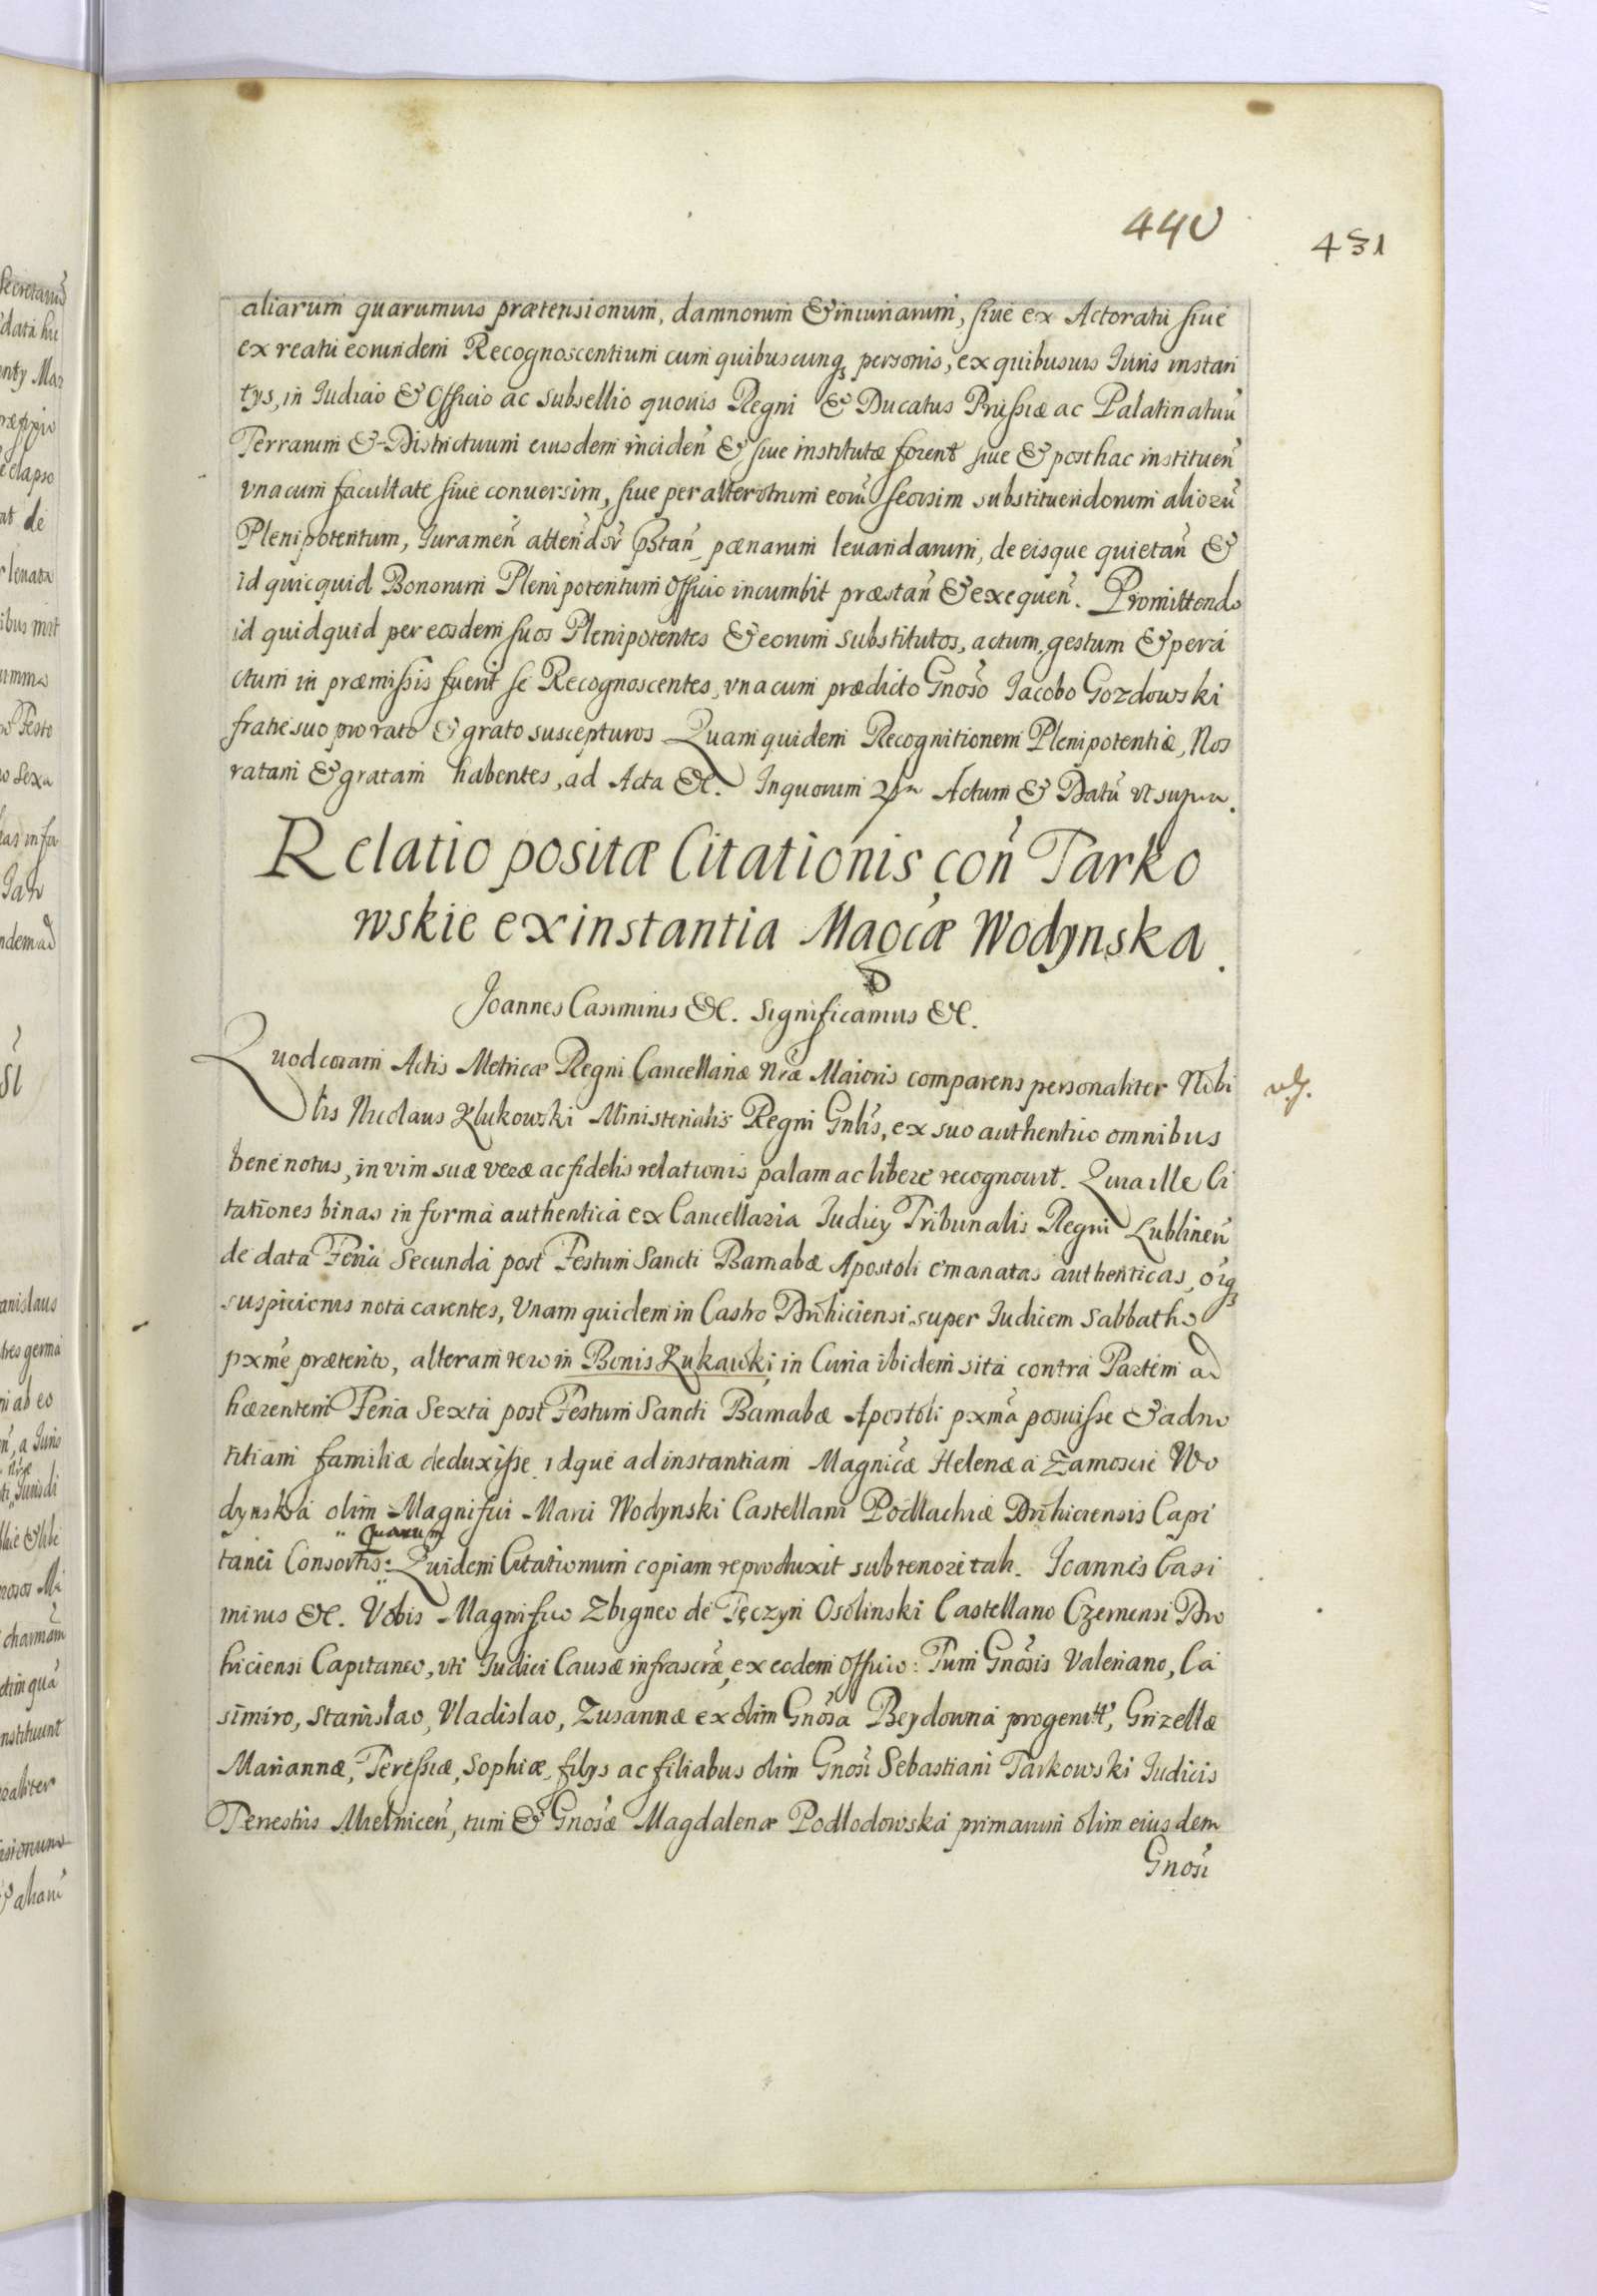 440
431
aliarum quarumuis prætensionum, damnorum & iniuriarum, siue ex Actoratu siue
ex reatu eorundem Recognoscentium cum quibuscunqꝫ personis, ex quibusuis Iuris instan
tys, in Iudicio & Officio ac subsellio quouis Regni & Ducatus Prussiæ ac Palatinatuũ
Terrarum & Districtuum eiusdem inciden̄ & siue institutæ forent siue & posthac instituen̄
vnacum facultate siue conuersim, siue per alterutrum eorũ seorsim substituendorum aliorũ
Plenipotentum, Iuramen̄ pænarum leuandarum, de eisque quietan̄ &
id quicquid Bonorum Plenipotentum officio incumbit præstan̄ & exequen̄. Promittendo
id quidquid per eosdem suos Plenipotentes & eorum substitutos, actum, gestum & pera
ctum in præmissis fuerit se Recognoscentes, vnacum prædicto Gnoso Iacobo Gozdowski
fratre suo pro rato & grato suscepturos Quam quidem Recognitionem Plenipotentiæ, Nos
ratam & gratam habentes, ad Acta &c. In quorum Actum & Datũ vt supra.
Relatio positæ Citationis con̄ Tarko
wskie ex instantia Magcæ Wodynska.
Joannes Casimirus &c. Significamus &c.
Quod coram Actis Metricæ Regni Cancellariæ Nræ Maioris comparens personaliter Nobi
lis Nicolaus Klukowski Ministerialis Regni Gnlis, ex suo authentico omnibus
bene notus, in vim suæ veræ ac fidelis relationis palam ac libere recognouit. Quia ille Ci
tationes binas in forma authentica ex Cancellaria Iudicy Tribunalis Regni Lublinen̄
de data Feria Secunda post Festum Sancti Barnabæ Apostoli emanatas authenticas, oĩqꝫ
suspicionis nota carentes, Vnam quidem in Castro Drohiciensi super Iudicem Sabbatho
pxme præterito, alteram vero in Bonis Rukawki, in Curia ibidem sita contra Partem ad
hærentem Feria Sexta post Festum Sancti Barnabæ Apostoli pxma posuisse & ad no
titiam familiæ deduxisse idque ad instantiam Magnicæ Helenæ a Zamoscie Wo
dynska olim Magnifici Marci Wodynski Castellani Podlachiæ Drohiciensis Capi
quarum
tanei Consortis: Quidem Citationum copiam reproduxit sub tenore tali. Ioannes Casi
mirus &c. Vobis Magnifico Zbigneo de Tęczyn Osolinski Castellano Czernensi Dro
hiciensi Capitaneo, vti Iudici Causæ infrascræ, ex eodem officio: Tum Gnosis Valeriano, Ca
simiro, Stanislao, Vladislao, Zusannæ ex olim Gnosa Beydowna progenit, Grizellæ
Mariannæ, Teressiæ, Sophiæ, filys ac filiabus olim Gnosi Sebastiani Tarkowski Iudicis
Terrestris Mielnicen̄, tum & Gnosæ Magdalenæ Podlodowska primarum olim eiusdem
Gnosi